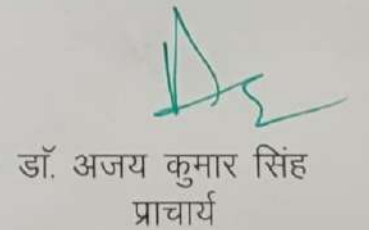 डॉ. अजय कुमार सिंह
प्राचार्य